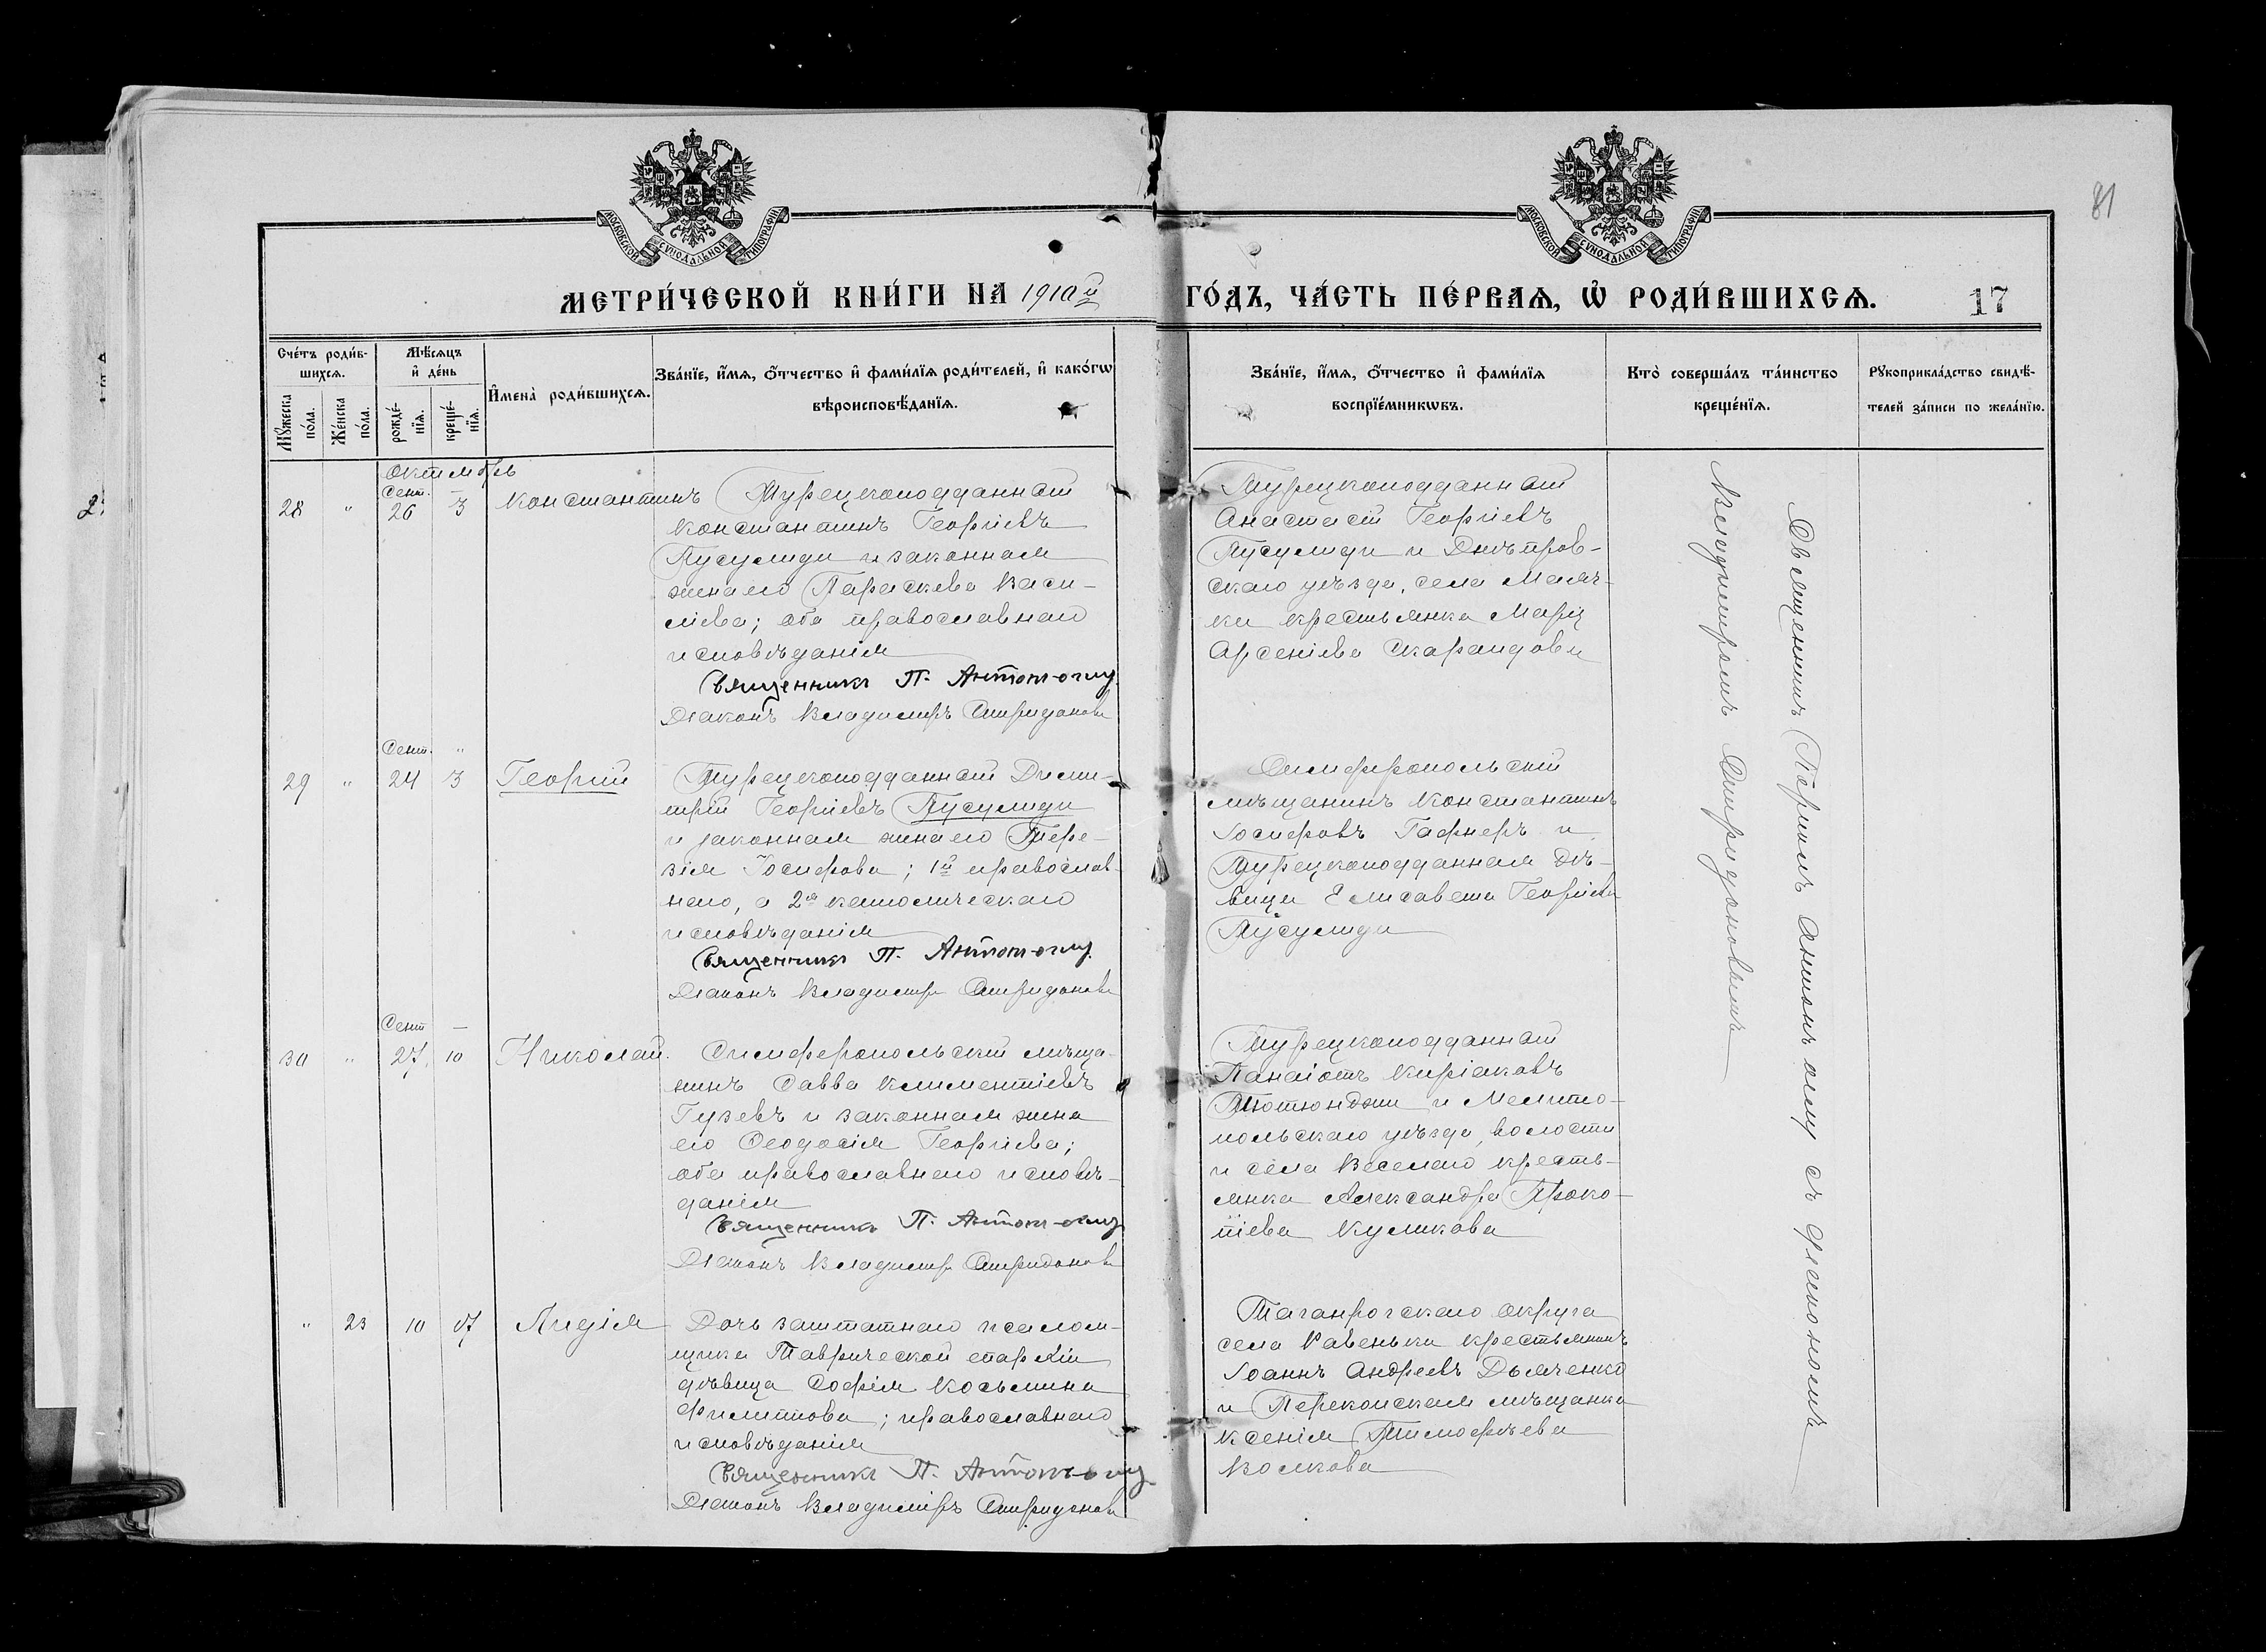 МОСКОВСКОЙ СУНОДАЛЬНОЙ ТИПОГРАФІИ
МОСКОВСКОЙ СУНОДАЛЬНОЙ ТИПОГРАФІИ
81
МЕТРИ́ЧЕСКОЙ КНИ́ГИ НА 1910й ГО́ДЪ, ЧА́СТЬ ПЕ́РВАЯ, Ѡ РОДИ́ВШИХСЯ.
17
Сче́тъ роди́в-
шихся.
Мꙋ́жеска по́ла.
Же́нска по́ла.
Мѣ́сяцъ
и҆ де́нь
рожде́-
нїя.
креще́-
нїя.
И҆мена̀ роди́вшихся.
Зва́нїе, и҆́мя, ѻ҆́тчество и҆ фами́лїя роди́телей, и҆ како́гѡ
вѣроисповѣ́данїя.
Зва́нїе, и҆́мя, ѻ҆́тчество и҆ фами́лїя
воспрїе́мникѡвъ.
Кто̀ соверша́лъ та́инство
креще́нїя.
Рꙋкоприкла́дство свидѣ́-
телей за́писи по жела́нїю.
Октябрь
Сент. –
28 " 26 3 Константинъ
Турецкоподданный
Константинъ Георгіевъ
Пусулиди и законная
жена его Параскева Васи-
ліева; оба православнаго
исповѣданія
Священникъ П. Антон-оглу
Діаконъ Владиміръ Спиридоновъ
Турецкоподданный
Анастасій Георгіевъ
Пусулиди и Днѣпров-
скаго уѣзда, села Маяч-
ки крестьянка Марія
Арсеніева
Сент. "
29 " 24 3 Георгій
Турецкоподданный Дими-
трій Георгіевъ Пусулиди
и законная жена его Тере-
зія Іосифова; 1й православ-
наго, а 2я католическаго
исповѣданія
Священникъ П. Антон-оглу.
Діаконъ Владиміръ Спиридоновъ
Симферопольскій
мѣщанинъ Константинъ
Іосифовъ Гафнеръ и
Турецкоподданная дѣ-
вица Елисавета Георгіева
Пусулиди
Сент –
30 " 27 10 Николай.
Симферопольскій мѣща-
нинъ Савва Климентіевъ
Гузевъ и законная жена
его Ѳеодосія Георгіева;
оба православнаго исповѣ-
данія
Священникъ П. Антон-оглу
Діаконъ Владиміръ Спиридоновъ
Турецкоподданный
Панаіотъ Киріаковъ
Тютюнджи и Мелито-
польскаго уѣзда, волости
и села Веселаго кресть-
янка Александра Проко-
піева Куликова
" 23 10 17 Лидія
Дочь заштатнаго псалом-
щика Таврической епархіи
дѣвица Софія Косьмина
Филиппова; православнаго
исповѣданія
Священникъ П. Антон-оглу
Діаконъ Владиміръ Спиридоновъ
Таганрогскаго округа
села Ровеньки крестьянинъ
Іоаннъ Андреевъ Дьяченко
и Перекопская мѣщанка
Ксенія Тимофѣева
Волкова
Священникъ Периклъ Антонъ оглу съ діакономъ
Владиміромъ Спиридоновымъ